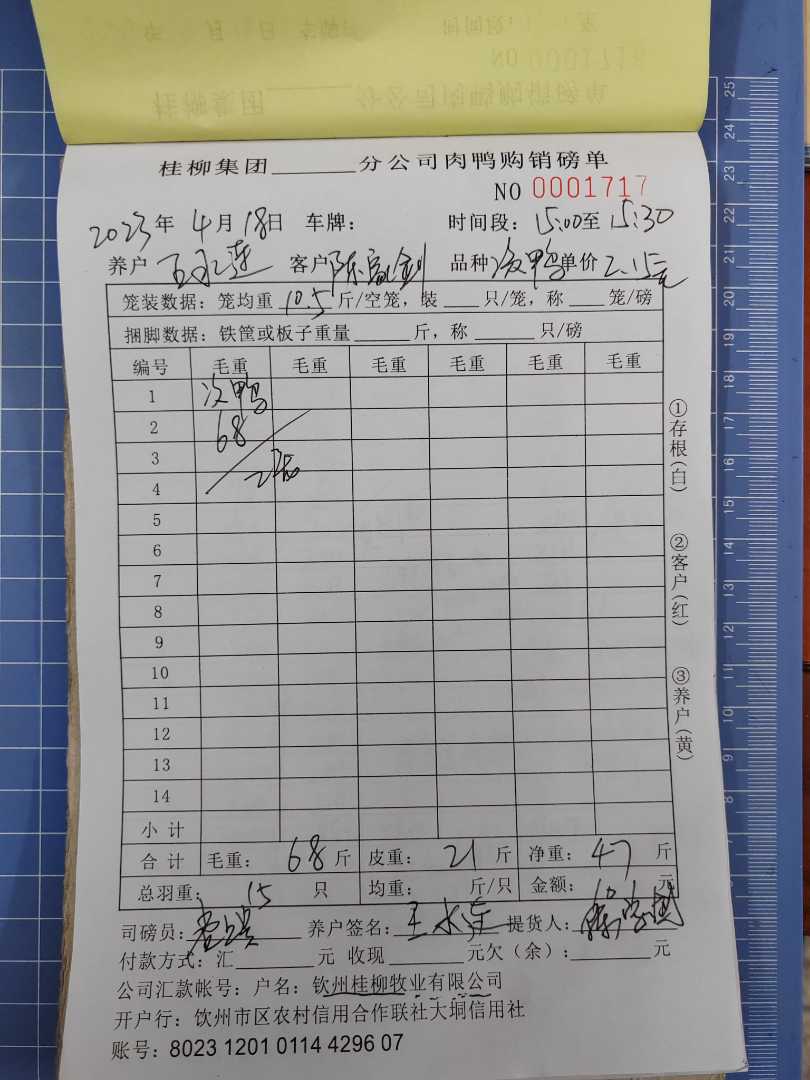 桂柳集团______分公司肉鸭购销磅单
NO 0001717
2023年 4月 18日 车牌： 时间段：15:00至 15:30
养户 王永莲 客户 品种 次鸭 单价 2.15元
笼装数据：笼均重 10.5 斤/空笼，装____只/笼，称____笼/磅
捆脚数据：铁筐或板子重量______斤，称______只/磅
编号 毛重 毛重 毛重 毛重 毛重 毛重
1 次鸭
2 68
3
4
5
6
7
8
9
10
11
12
13
14
小计
合计 毛重： 68 斤 皮重： 21 斤 净重： 47 斤
总羽重： 15 只 均重： 斤/只 金额： 元
司磅员： 养户签名：王永莲 提货人：
付款方式：汇________元 收现________元欠（余）：________元
公司汇款帐号：户名：钦州桂柳牧业有限公司
开户行：钦州市区农村信用合作联社大垌信用社
账号：8023 1201 0114 4296 07
①存根(白)
②客户(红)
③养户(黄)